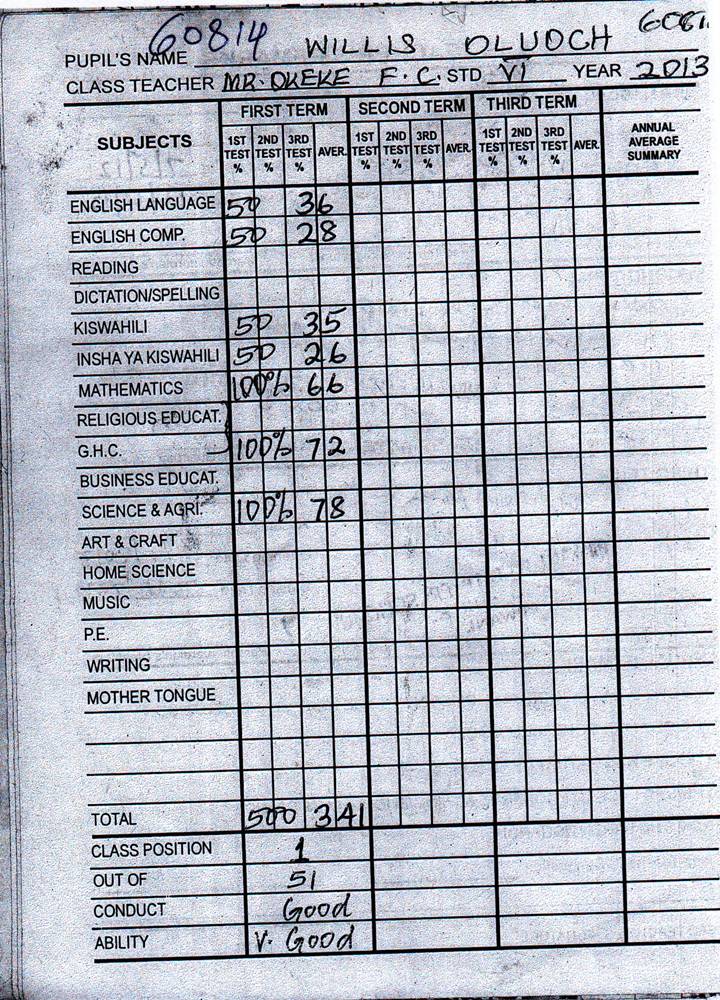 60814
PUPIL'S NAME WILLIS OLUOCH
CLASS TEACHER MR. OKEKE F. C. STD VI YEAR 2013
SUBJECTS FIRST TERM SECOND TERM THIRD TERM ANNUAL AVERAGE SUMMARY
1ST TEST % 2ND TEST % 3RD TEST % AVER. 1ST TEST % 2ND TEST % 3RD TEST % AVER. 1ST TEST % 2ND TEST % 3RD TEST % AVER.
ENGLISH LANGUAGE 50 36
ENGLISH COMP. 50 28
READING
DICTATION/SPELLING
KISWAHILI 50 35
INSHA YA KISWAHILI 50 26
MATHEMATICS 100% 66
RELIGIOUS EDUCAT.
G.H.C. 100% 72
BUSINESS EDUCAT.
SCIENCE & AGRI. 100% 78
ART & CRAFT
HOME SCIENCE
MUSIC
P.E.
WRITING
MOTHER TONGUE
TOTAL 500 341
CLASS POSITION 1
OUT OF 51
CONDUCT Good
ABILITY V. Good